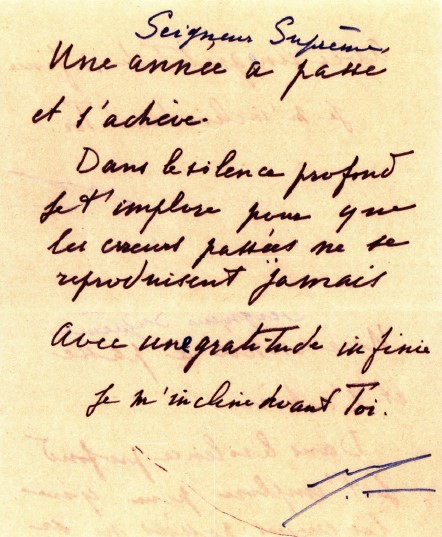 Seigneur Suprême,
Une année a passé
et s'achève.
Dans le silence profond
je t'implore pour que
les erreurs passées ne se
reproduisent jamais
Avec une gratitude infinie
je m'incline devant Toi.